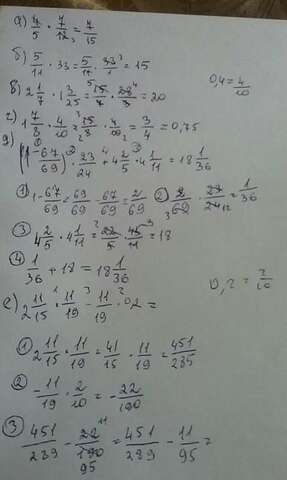 а) 4/5 · 7/12 = 7/15
б) 5/11 · 33 = 5/11 · 33/1 = 15
в) 2 1/7 · 1 3/25 = 15/7 · 28/8 = 20
0,4 = 4/10
г) 1 7/8 · 4/10 = 15/8 · 4/10 = 3/4 = 0,75
д) (1 - 67/69) · 23/24 + 4 2/5 · 4 1/11 = 18 1/36
① 1 - 67/69 = 69/69 - 67/69 = 2/69 ② 2/69 · 23/24 = 1/36
③ 4 2/5 · 4 1/11 = 22/5 · 45/11 = 18
④ 1/36 + 18 = 18 1/36
е) 2 11/15 · 11/19 - 11/19 · 0,2 =
0,2 = 2/10
① 2 11/15 · 11/19 = 41/15 · 11/19 = 451/285
② - 11/19 · 2/10 = - 22/190
③ 451/289 - 22/190 = 451/289 - 11/95 =